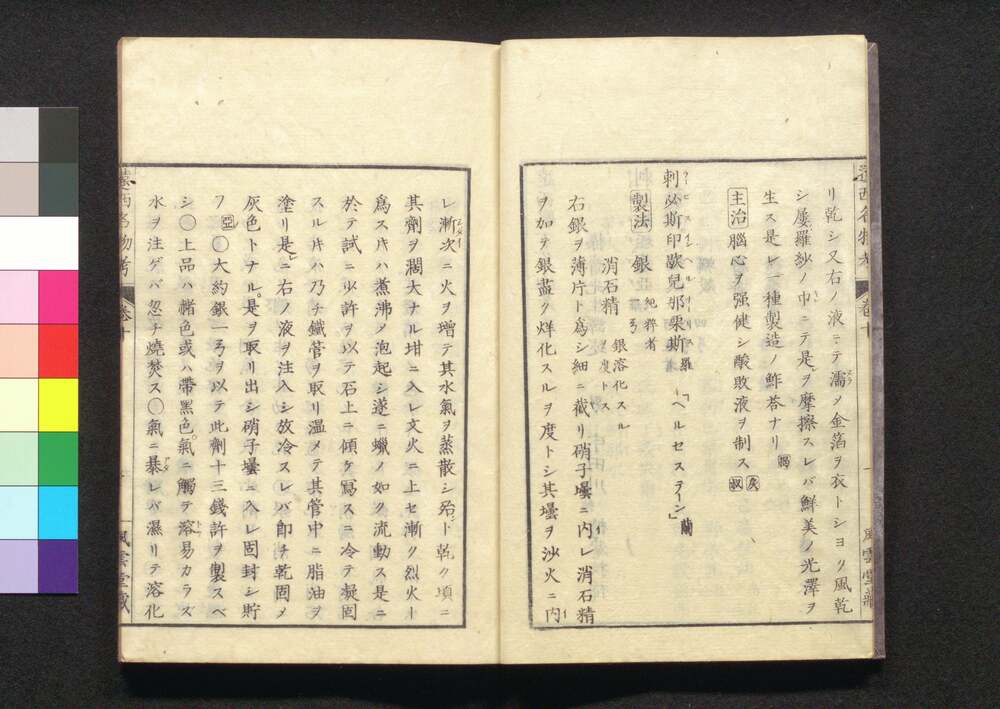 遠西名物考 卷十 風雲堂藏
リ乾シ又右ノ液ニテ濡メ金箔ヲ衣トシヨク風乾
シ屢羅紗ノ巾ニテ是ヲ摩擦スレバ鮮美ノ光澤ヲ
生ス是レ一種製造ノ鮓荅ナリ
主治 腦心ヲ强健シ酸敗液ヲ制ス
刺必斯印歇兒那栗斯 羅 「ヘルセステイン」 蘭
製法 銀 純粹者 一弓
消石精 銀溶化スル ヲ度トス
右銀ヲ薄片ト爲シ細ニ截リ硝子罎ニ内レ消石精
ヲ加テ銀盡ク烊化スルヲ度トシ其罎ヲ沙火ニ内
レ漸次ニ火ヲ增テ其水氣ヲ蒸散シ殆ド乾ク頃ニ
其劑ヲ濶大ナル坩ニ入レ文火ニ上セ漸ク烈火ト
爲スキハ煮沸ノ泡起シ遂ニ蠟ノ如ク流動ス是ニ
於テ試ニ少許ヲ以テ石上ニ傾ケ寫スニ冷テ凝固
スルキハ乃チ鐵管ヲ取リ温メテ其管中ニ脂油ヲ
塗リ是ニ右ノ液ヲ注入シ放冷スレバ卽チ乾固メ
灰色トナル是ヲ取リ出シ硝子罎ニ入レ固封シ貯
フ 亞 〇大約銀一弓ヲ以テ此劑十三錢許ヲ製スベ
シ〇上品ハ赭色或ハ帶黑色氣ニ觸テ溶易カラズ
水ヲ注ゲバ忽チ燒焚ス〇氣ニ暴レバ濕リテ溶化
遠西名物考 卷十 風雲堂藏